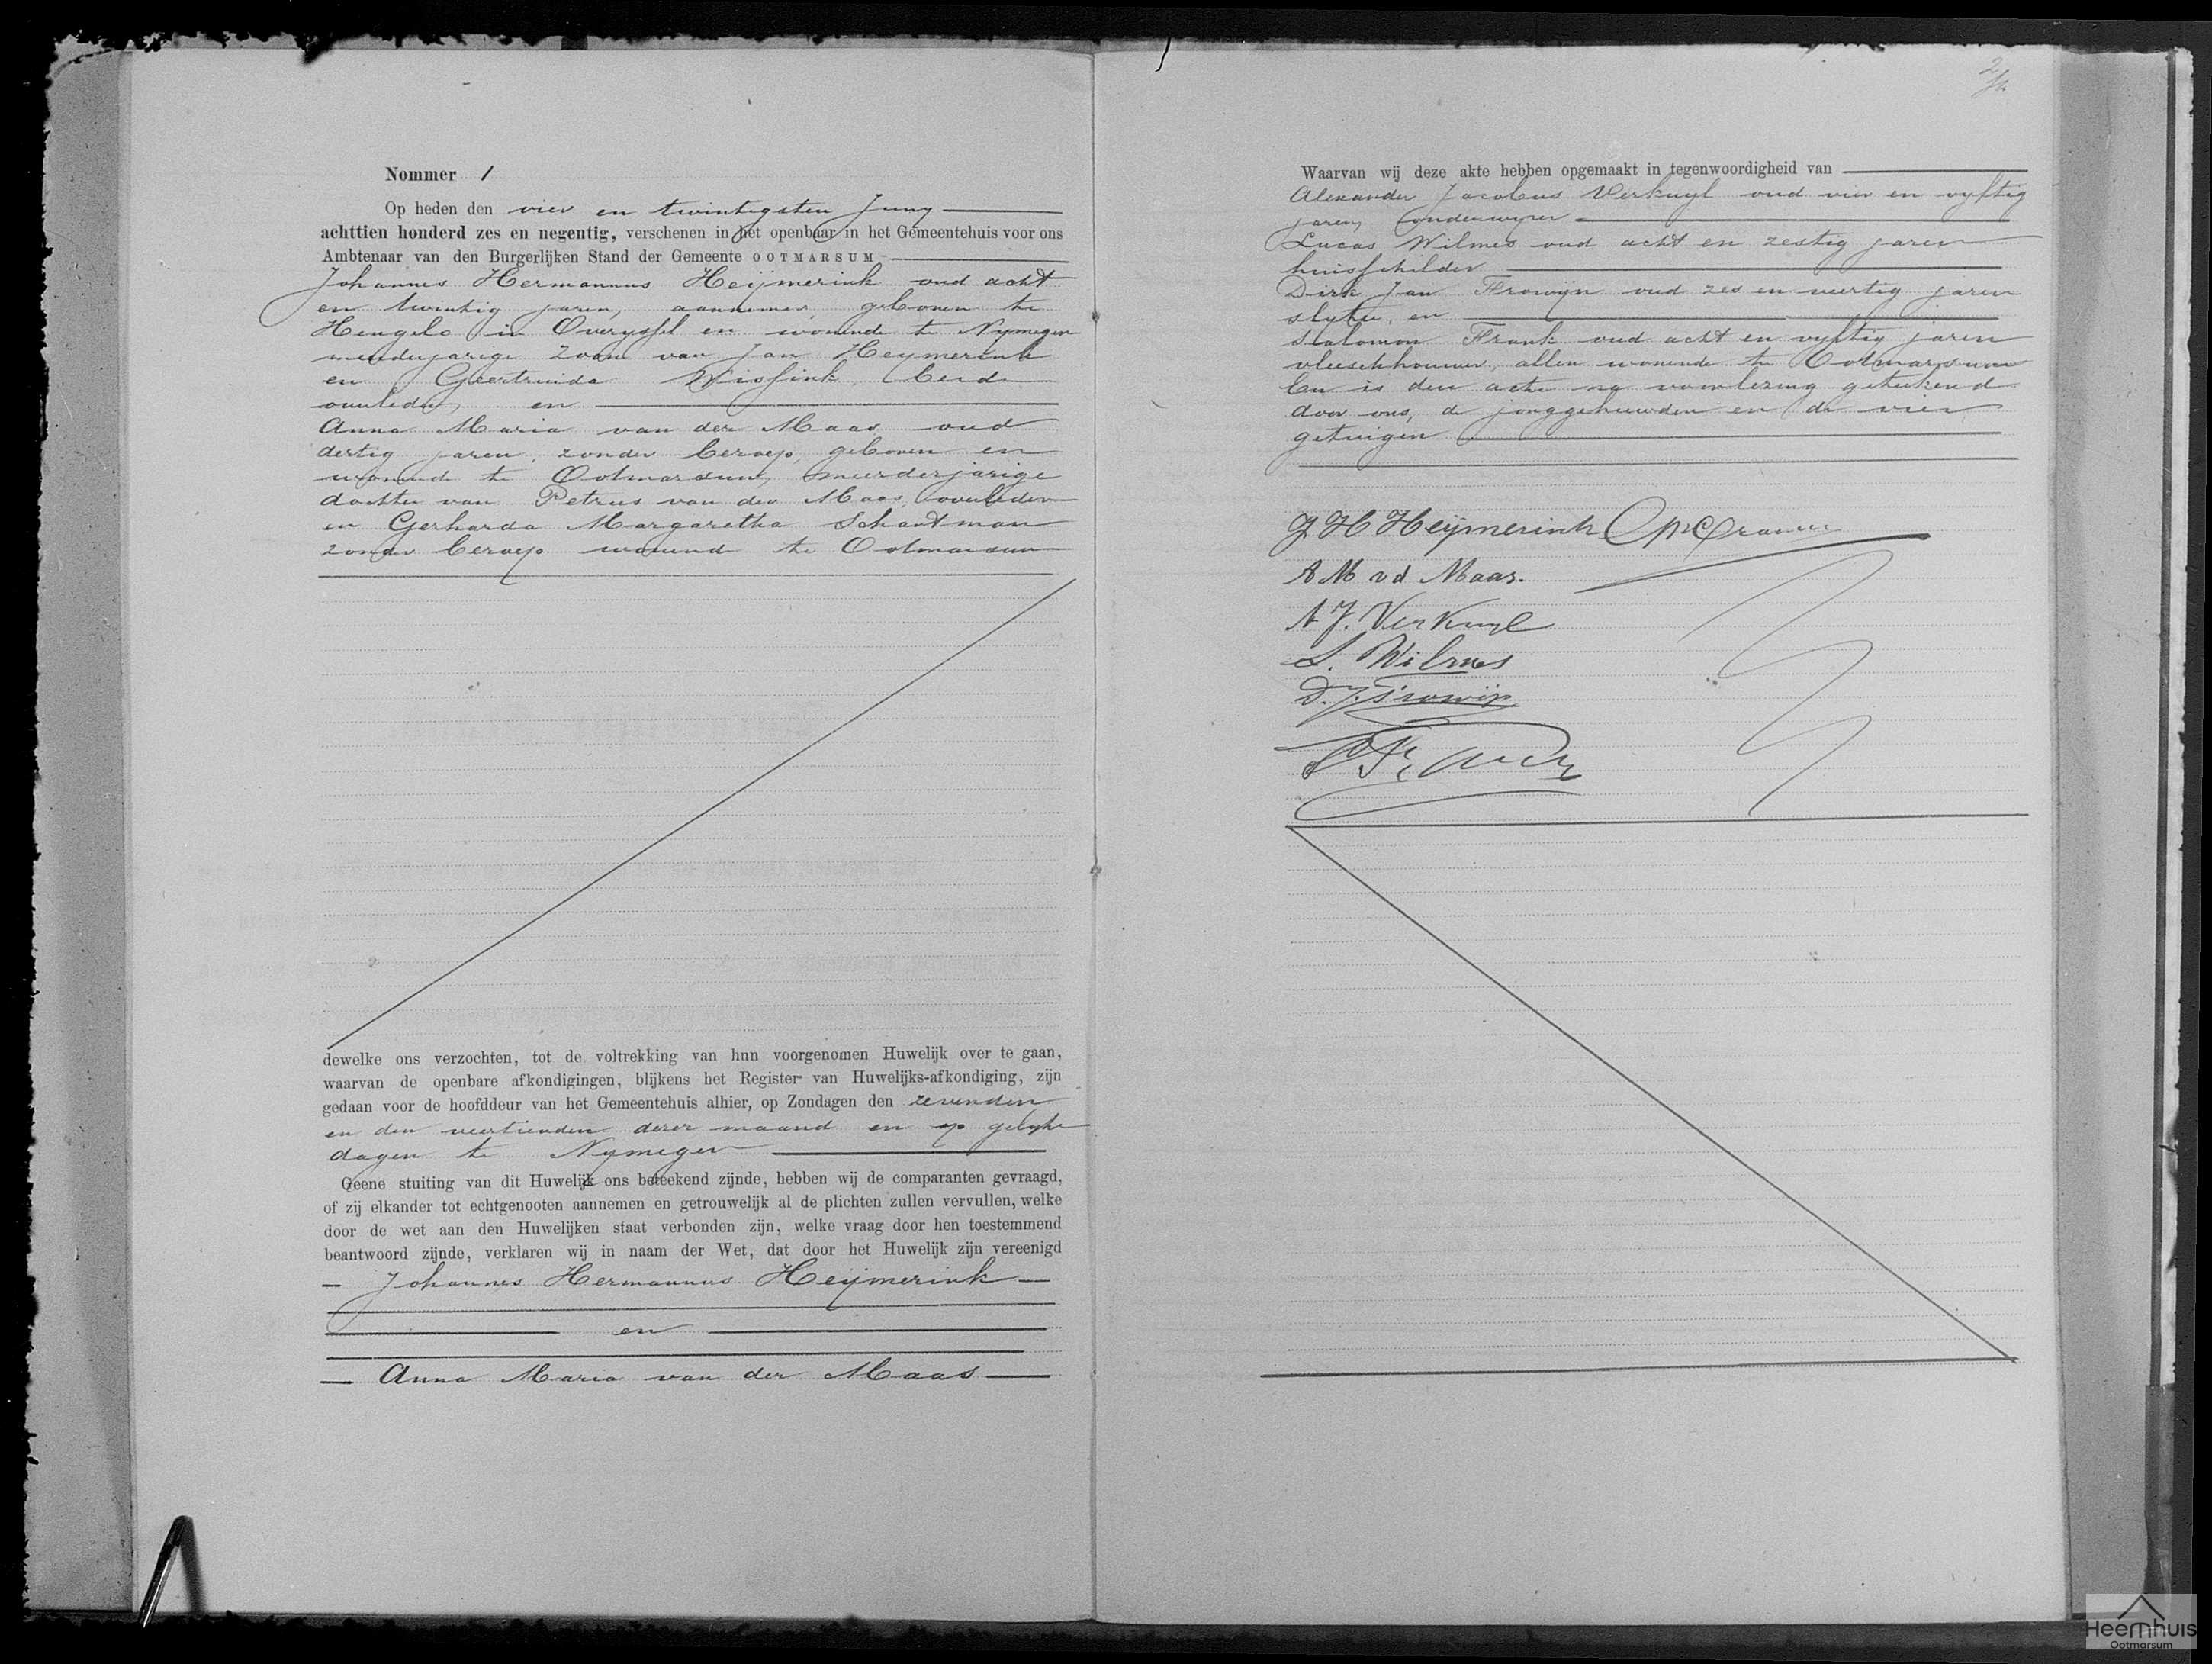 Nommer 1
Op heden den vier en twintigsten Juny
achttien honderd zes en negentig, verschenen in het openbaar in het Gemeentehuis voor ons
Ambtenaar van den Burgerlijken Stand der Gemeente OOTMARSUM
Johannes Hermannus Heijmerink oud acht
en twintig jaren, aannemer, geboren te
Hengelo in Overyssel en wonend te Nymegen
meerderjarige zoon van Jan Heymerink
en Geertruida Wissink, beide
overleden, en
Anna Maria van der Maas oud
dertig jaren, zonder beroep, geboren en
wonende te Ootmarsum, meerderjarige
dochter van Petrus van der Maas, overleden
en Gerharda Margaretha Schautman
zonder beroep wonend te Ootmarsum
dewelke ons verzochten, tot de voltrekking van hun voorgenomen Huwelijk over te gaan,
waarvan de openbare afkondigingen, blijkens het Register van Huwelijks-afkondiging, zijn
gedaan voor de hoofddeur van het Gemeentehuis alhier, op Zondagen den zevenden
en den veertienden dezer maand en op gelyke
dagen te Nymegen
Geene stuiting van dit Huwelijk ons beteekend zijnde, hebben wij de comparanten gevraagd,
of zij elkander tot echtgenooten aannemen en getrouwelijk al de plichten zullen vervullen, welke
door de wet aan den Huwelijken staat verbonden zijn, welke vraag door hen toestemmend
beantwoord zijnde, verklaren wij in naam der Wet, dat door het Huwelijk zijn vereenigd
Johannes Hermannus Heijmerink
en
Anna Maria van der Maas
2
Waarvan wij deze akte hebben opgemaakt in tegenwoordigheid van
Alexander Jacobus Verkuyl oud vier en vyftig
jaren, onderwyzer
Lucas Wilmes oud acht en zestig jaren
huisschilder
Dirk Jan Frowijn oud zes en veertig jaren
slyter, en
Salomon Frank oud acht en vyftig jaren
vleeschhouwer, allen wonende te Ootmarsum
En is deze acte na voorlezing geteekend
door ons, de jonggehuwden en de vier
getuigen
J H Heijmerink
A M v d Maas.
A J. Verkuyl
L. Wilmes
D. J. Frowijn
S Frank
Heemhuis
Ootmarsum